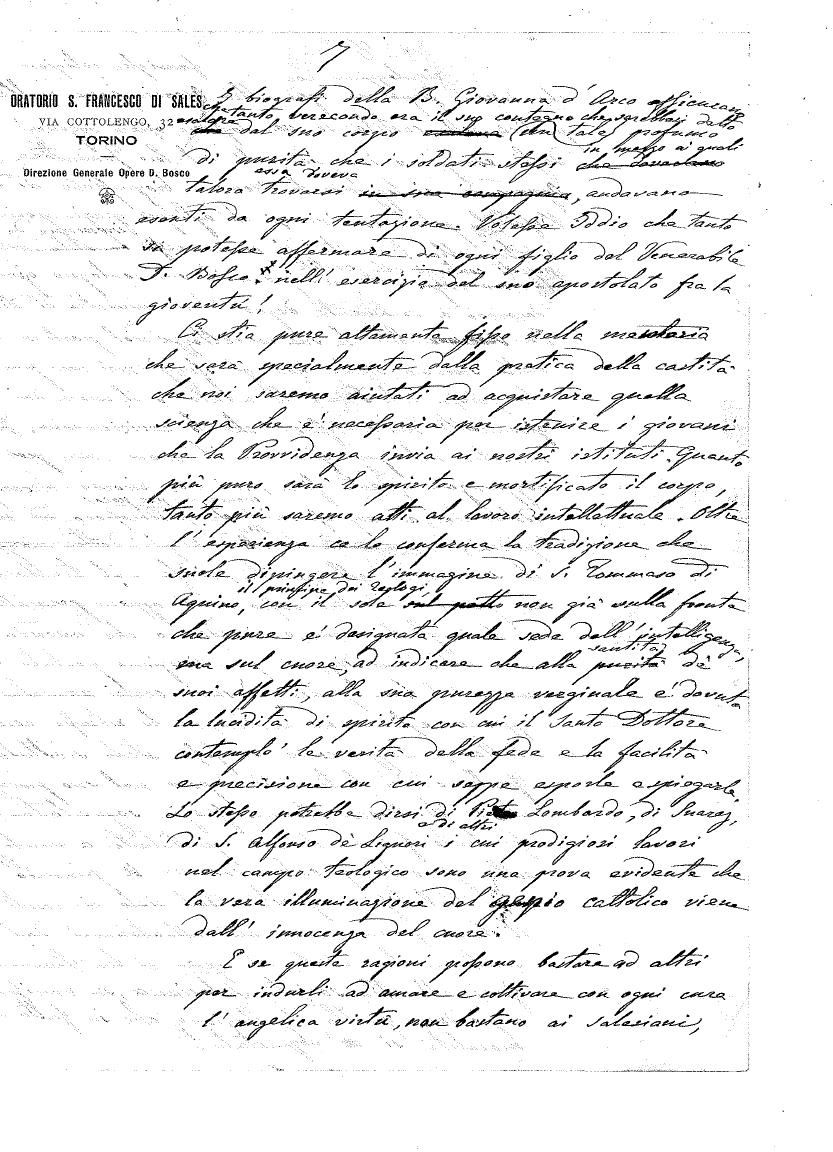 7
ORATORIO S. FRANCESCO DI SALES
VIA COTTOLENGO, 32
TORINO
Direzione Generale Opere D. Bosco
I biografi della B. Giovanna d'Arco assicurano
che tanto verecondo era il suo contegno che sarebbesi detto
esalare dal suo corpo un tale profumo
in mezzo ai quali
di purità che i soldati stessi che dovevano
essa doveva
talora trovarsi in sua compagnia, andavano
esenti da ogni tentazione. Volesse Iddio che tanto
si potesse affermare di ogni figlio del Venerabile
D. Bosco nell'esercizio del suo apostolato fra la
gioventù!
Ci stia pure altamente fisso nella memoria
che sarà specialmente dalla pratica della castità
che noi saremo aiutati ad acquistare quella
scienza che è necessaria per istruire i giovani
che la Provvidenza invia ai nostri istituti. Quanto
più puro sarà lo spirito e mortificato il corpo,
tanto più saremo atti al lavoro intellettuale. Oltre
l'esperienza ce lo conferma la tradizione che
suole dipingere l'immagine di S. Tommaso di
il principe dei teologi,
Aquino, con il sole sul petto non già sulla fronte
che pure è designata quale sede dell'intelligenza,
santità
ma sul cuore, ad indicare che alla purità de'
suoi affetti, alla sua purezza verginale è dovuta
la lucidità di spirito con cui il Santo Dottore
contemplò le verità della fede e la facilità
e precisione con cui seppe esporle e spiegarle.
Lo stesso potrebbe dirsi di Pietro Lombardo, di Suarez,
e di altri
di S. Alfonso de' Liguori i cui prodigiosi lavori
nel campo teologico sono una prova evidente che
la vera illuminazione del genio cattolico viene
dall'innocenza del cuore.
E se queste ragioni possono bastare ad altri
per indurli ad amare e coltivare con ogni cura
l'angelica virtù, non bastano ai Salesiani,